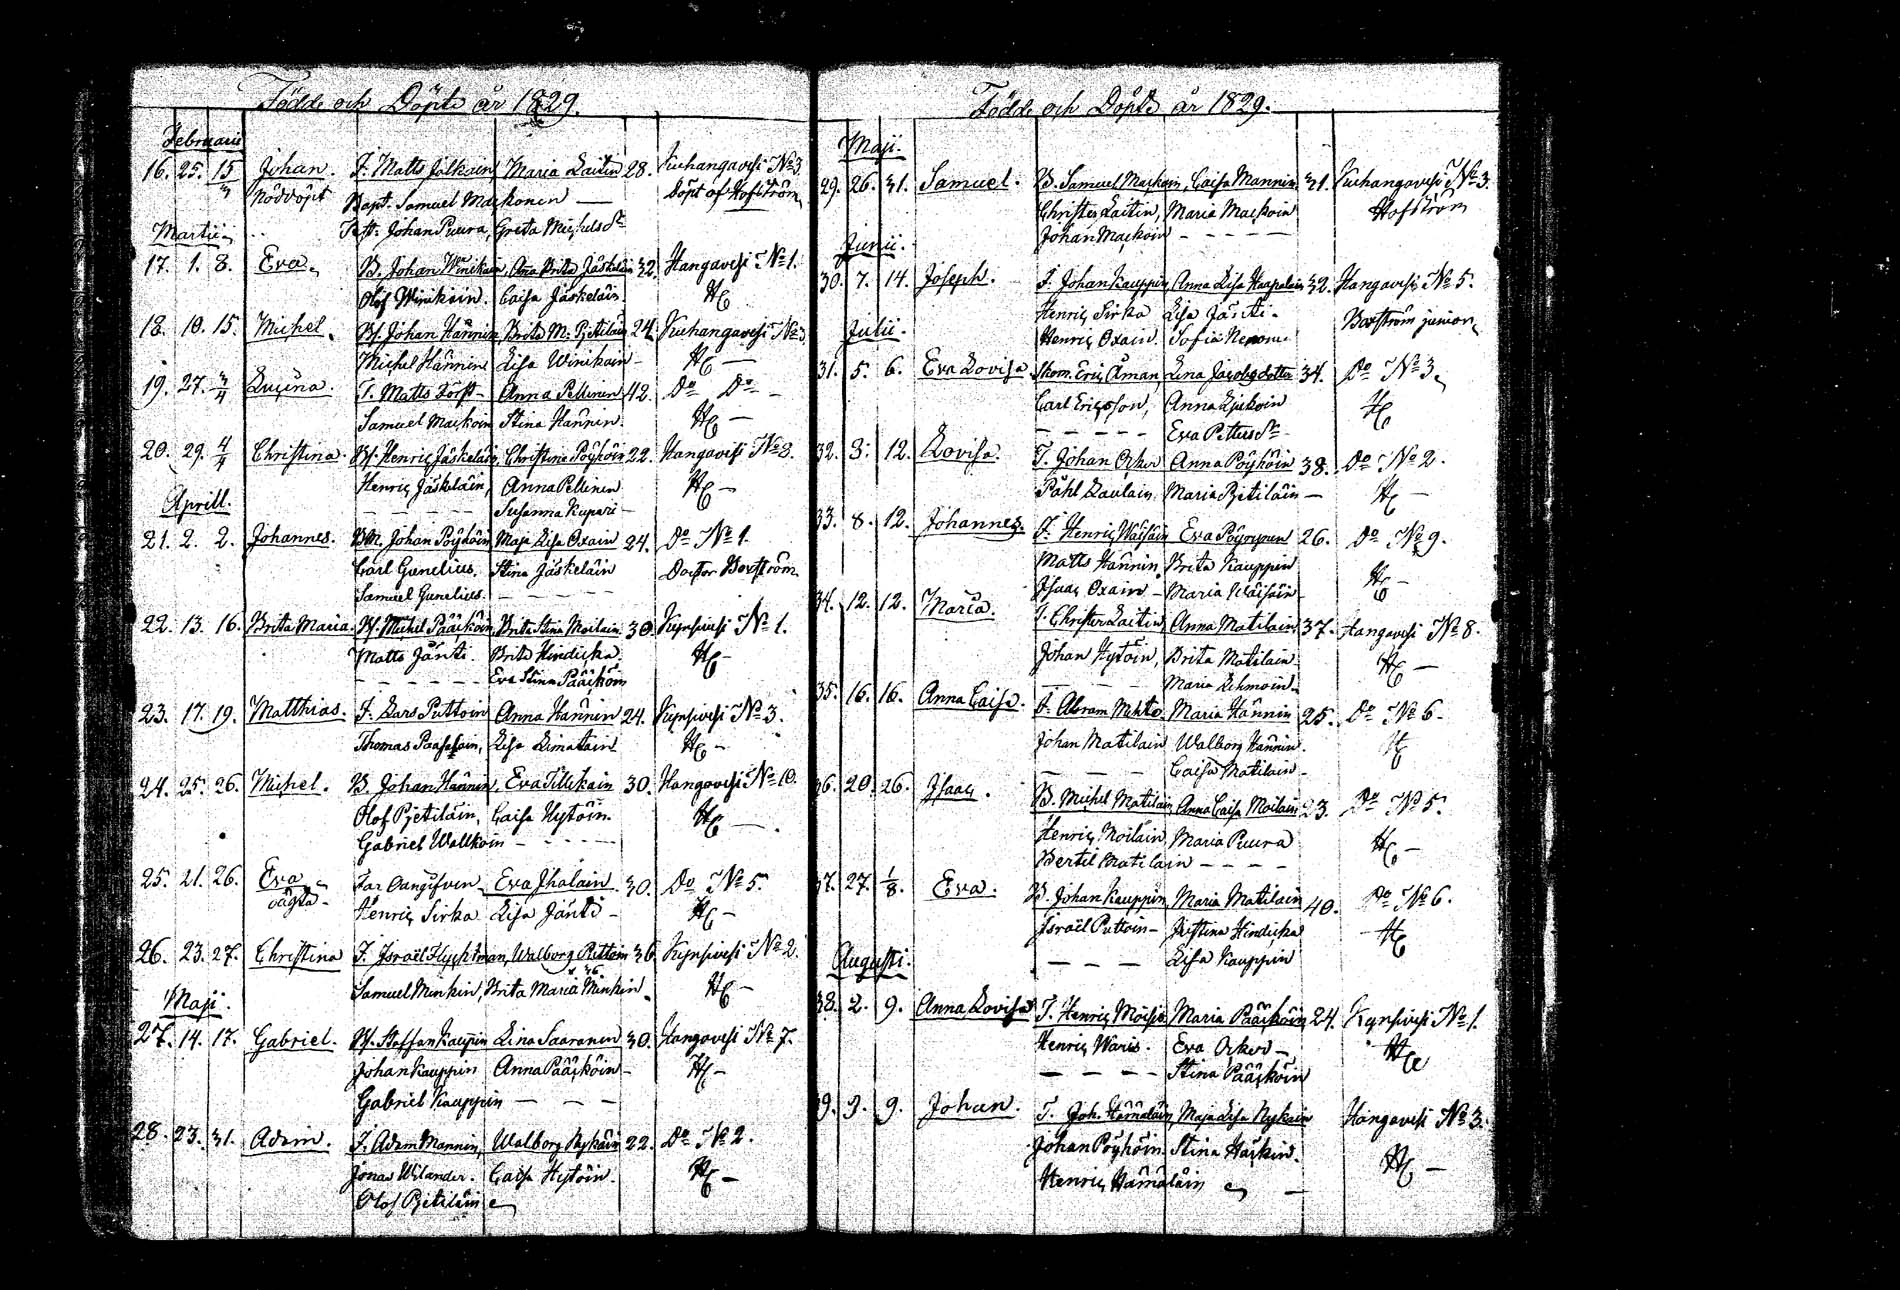 Födde och Döpte år 1829.
Februarii
16. 25. 15/3 Johan. T. Matts Jalkain Maria Laitin 28. Kuhangavesi No 3.
Nöddöpt Bapt. Samuel Mackonen — döpt af Hofström
Test: Johan Puura, Greta Michelsdr
Martii
17. 1. 8. Eva. B. Johan Winikain, Ana Brita Jäskeläin 32. Hangavesi No 1.
Olof Winikain. Caisa Jäskeläin. H
18. 10. 15. Michel. Bf. Johan Hännin, Brita M. Pjetiläin 24. Kuhangavesi No 3.
Michel Hännin Lisa Winikain — H —
19. 27. 3/4 Lucina. T. Matts Törst — Anna Pellinen 42. Do Do —
Samuel Mackoin Stina Hännin. H —
20. 29. 4/4 Christina. Bf. Henric Jäskeläin, Christina Pöyhöin 22. Hangavesi No 8.
Henric Jäskeläin, Anna Pellinen H —
— — — — Susanna Kupari —
Aprill.
21. 2. 2. Johannes. Johan Pöyhöin Maja Lisa Oxain 24. Do No 1.
Carl Gunelius. Stina Jäskeläin Doctor Boxström
Samuel Gunelius. — — — —
22. 13. 16. Brita Maria. Bf. Michel Pääsköin, Brita Stina Moilain 30. Kynsivesi No 1.
Matts Jänti. Brita Hindicka. H —
— — — — Eva Stina Pääsköin
23. 17. 19. Matthias. T. Lars Puttoin Anna Hännin 24. Kynsivesi No 3.
Thomas Paasalain, Lisa Limatain H —
24. 25. 26. Michel. B. Johan Hännin, Eva Tillikain 30. Hangavesi No 10.
Olof Pjetiläin, Caisa Hytöin. H —
Gabriel Wallkoin — — — —
25. 21. 26. Eva Far Oangifven Eva Ihalain 30. Do No 5.
oägta — Henric Sirka Lisa Jänti — H —
26. 23. 27. Christina T. Israël Flychtman, Walborg Puttoin 36. Kynsivesi No 2.
Samuel Minkin, Brita Maria Minkin. H —
Maji.
27. 14. 17. Gabriel. Bf. Staffan Kaupin Lina Saaranen 30. Hangavesi No 7.
Johan Kauppin Anna Pääsköin — H —
Gabriel Kauppin — — —
28. 23. 31. Adam. T. Adam Mannin, Walborg Rykäin 22. Do No 2.
Jonas Wilander. Caisa Hytöin. H —
Olof Pjetiläin
Födde och Döpte år 1829.
Maji.
29. 26. 31. Samuel. B. Samuel Mackoin, Caisa Mannin 31. Kuhangavesi No 3.
Christer Laitin, Maria Mackoin Hofström
Johan Mackoin — — — —
Junii.
30. 7. 14. Joseph. T. Johan Kauppin Anna Lisa Haapalain 32. Hangavesi No 5.
Henric Sirka Lisa Jänti. Boxström junior
Henric Oxain. Sofia
Julii.
31. 5. 6. Eva Lovisa Skom. Eric Åman, Lina Jacobsdotter 34. Do No 3.
Carl Ericsson, Anna Ljukoin H
— — — — Eva Pettersdr —
32. 3. 12. Lovisa. T. Johan Ocker Anna Pöyhöin 38. Do No 2.
Påhl Laulain, Maria Pjetiläin — H —
33. 8. 12. Johannes. T. Henric Wäisäin Eva Pöyrynen 26. Do No 9.
Matts Hännin, Brita Kauppin H —
Isaac Oxain — Maria Wäisäin —
34. 12. 12. Maria. T. Christer Laitin Anna Matilain 37. Hangavesi No 8.
Johan Hytöin, Brita Matilain H —
— — — Maria Lehmoin —
35. 16. 16. Anna Caisa. T. Abram Mehto Maria Hännin 25. Do No 6.
Johan Matilain Walborg Hännin. H
— — — Caisa Matilain —
36. 20. 26. Isaac. B. Michel Matilain, Anna Caisa Moilain 23. Do No 5.
Henric Moilain, Maria Puura H —
Bertil Matilain — — — —
37. 27. 1/8. Eva. B. Johan Kauppin, Maria Matilain 40. Do No 6.
Israël Puttoin — Justina Hindicka H
— — — Lisa Kauppin
Augusti.
38. 2. 9. Anna Lovisa T. Henric Moisio Maria Pääsköin 24. Kynsivesi No 1.
Henric Waris. Eva Ocker — H
— — — — Stina Pääsköin
39. 3. 9. Johan. T. Joh. Hämäläin, Maja Lisa Nykain Hangavesi No 3.
Johan Pöyhöin. Stina Häskin. H —
Henric Hämäläin —